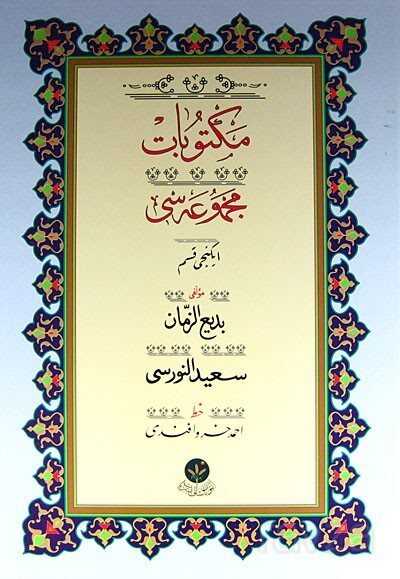 مكتوبات
مجموعه سى
ايكنجى قسم
مؤلفى
بديع الزّمان
سعيد النورسى
خط
احمد خسرو افندى